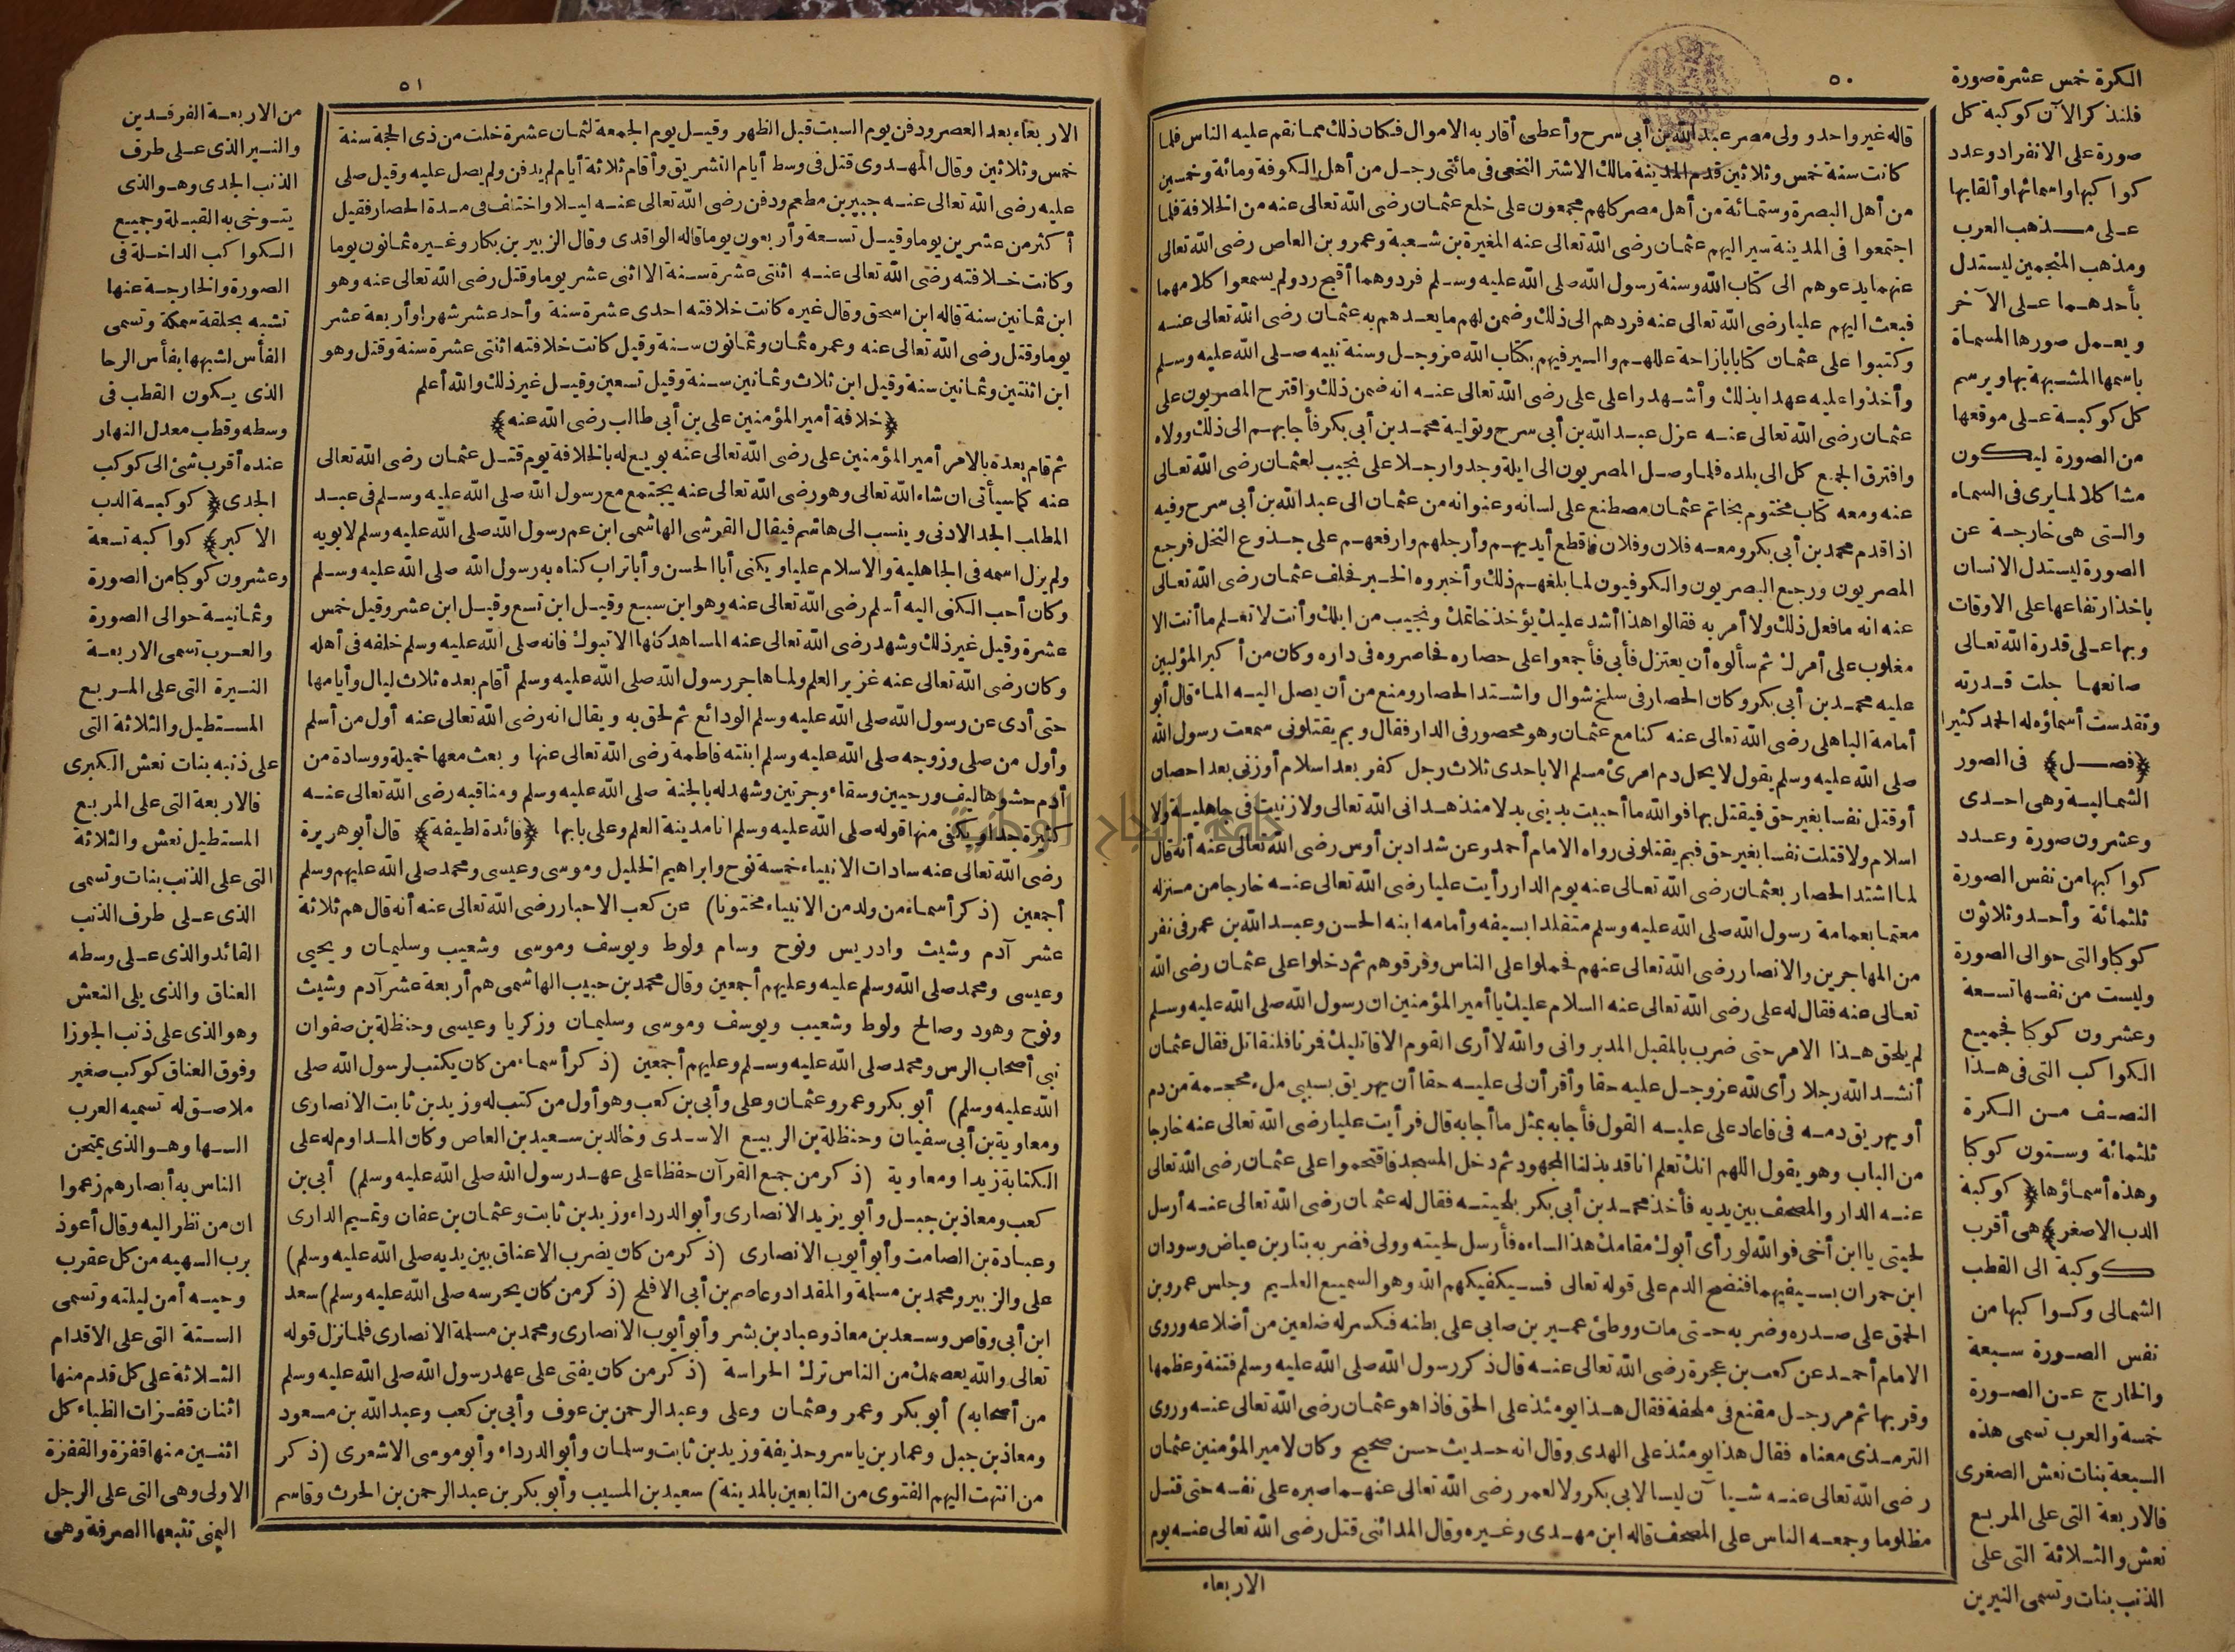 ٥٠
قاله غير واحد وولى مصر عبد الله بن أبى سرح وأعطى أقاربه الاموال فكان ذلك مما نقم عليه الناس فلما
كانت سنة خمس وثلاثين قدم المدينة مالك الاشتر النخعى فى مائتى رجل من أهل الكوفة ومائة وخمسين
من أهل البصرة وستمائة من أهل مصر كلهم مجمعون على خلع عثمان رضى الله تعالى عنه من الخلافة فلما
اجتمعوا فى المدينة سير اليهم عثمان رضى الله تعالى عنه المغيرة بن شعبة وعمرو بن العاص رضى الله تعالى
عنهما يدعوهم الى كتاب الله وسنة رسول الله صلى الله عليه وسلم فردوهما أقبح رد ولم يسمعوا كلامهما
فبعث اليهم عليا رضى الله تعالى عنه فردهم الى ذلك وضمن لهم ما يعدهم به عثمان رضى الله تعالى عنه
وكتبوا على عثمان كتابا بازاحة عللهم والسير فيهم بكتاب الله عز وجل وسنة نبيه صلى الله عليه وسلم
وأخذوا عليه عهدا بذلك وأشهدوا على على رضى الله تعالى عنه انه ضمن ذلك واقترح المصريون على
عثمان رضى الله تعالى عنه عزل عبد الله بن أبى سرح وتولية محمد بن أبى بكر فأجابهم الى ذلك وولاه
وافترق الجمع كل الى بلده فلما وصل المصريون الى ايلة وجدوا رجلا على نجيب لعثمان رضى الله تعالى
عنه ومعه كتاب مختوم بخاتم عثمان مصطنع على لسانه وعنوانه من عثمان الى عبد الله بن أبى سرح وفيه
اذا قدم محمد بن أبى بكر ومعه فلان وفلان فاقطع أيديهم وأرجلهم وارفعهم على جذوع النخل فرجع
المصريون ورجع البصريون والكوفيون لما بلغهم ذلك وأخبروه الخبر فحلف عثمان رضى الله تعالى
عنه انه ما فعل ذلك ولا أمر به فقالوا هذا أشد عليك يؤخذ خاتمك ونجيب من ابلك وأنت لا تعلم ما أنت الا
مغلوب على أمرك ثم سألوه أن يعتزل فأبى فأجمعوا على حصاره فحاصروه فى داره وكان من أكبر المؤلبين
عليه محمد بن أبى بكر وكان الحصار فى سلخ شوال واشتد الحصار ومنع من أن يصل اليه الماء قال أبو
أمامة الباهلى رضى الله تعالى عنه كنا مع عثمان وهو محصور فى الدار فقال وبم يقتلونى سمعت رسول الله
صلى الله عليه وسلم يقول لا يحل دم امرئ مسلم الا باحدى ثلاث رجل كفر بعد اسلام أو زنى بعد احصان
أو قتل نفسا بغير حق فيقتل بها فوالله ما أحببت بدينى بدلا منذ هدانى الله تعالى ولا زنيت فى جاهلية ولا
اسلام ولا قتلت نفسا بغير حق فبم يقتلونى رواه الامام أحمد وعن شداد بن أوس رضى الله تعالى عنه أنه قال
لما اشتد الحصار بعثمان رضى الله تعالى عنه يوم الدار رأيت عليا رضى الله تعالى عنه خارجا من منزله
معتما بعمامة رسول الله صلى الله عليه وسلم متقلدا بسيفه وأمامه ابنه الحسن وعبد الله بن عمر فى نفر
من المهاجرين والانصار رضى الله تعالى عنهم فحملوا على الناس وفرقوهم ثم دخلوا على عثمان رضى الله
تعالى عنه فقال له على رضى الله تعالى عنه السلام عليك يا أمير المؤمنين ان رسول الله صلى الله عليه وسلم
لم يلحق هذا الامر حتى ضرب بالمقبل المدبر وانى والله لا أرى القوم الا قاتليك فمرنا فلنقاتل فقال عثمان
أنشد الله رجلا رأى لله عز وجل عليه حقا وأقر أن لى عليه حقا أن يهريق بسببى ملء محجمة من دم
أو يهريق دمه فى فاعاد على عليه القول فأجابه بمثل ما أجابه قال فرأيت عليا رضى الله تعالى عنه خارجا
من الباب وهو يقول اللهم انك تعلم انا قد بذلنا المجهود ثم دخل المسجد فاقتحموا على عثمان رضى الله تعالى
عنه الدار والمصحف بين يديه فأخذ محمد بن أبى بكر بلحيته فقال له عثمان رضى الله تعالى عنه أرسل
لحيتى يا ابن أخى فوالله لو رأى أبوك مقامك هذا لساءه فأرسل لحيته وولى فضربه بتار بن عياض وسودان
ابن حمران بسيفيهما فنضح الدم على قوله تعالى فسيكفيكهم الله وهو السميع العليم وجلس عمرو بن
الحمق على صدره وضربه حتى مات ووطئ عمير بن صابى على بطنه فكسر له ضلعين من أضلاعه وروى
الامام أحمد عن كعب بن عجرة رضى الله تعالى عنه قال ذكر رسول الله صلى الله عليه وسلم فتنة وعظمها
وقربها ثم مر رجل مقنع فى ملحفة فقال هذا يومئذ على الحق فاذا هو عثمان رضى الله تعالى عنه وروى
الترمذى معناه فقال هذا يومئذ على الهدى وقال انه حديث حسن صحيح وكان لامير المؤمنين عثمان
رضى الله تعالى عنه شيا آن ليسا لابى بكر ولا لعمر رضى الله تعالى عنهما صبره على نفسه حتى قتل
مظلوما وجمعه الناس على المصحف قاله ابن مهدى وغيره وقال المدائنى قتل رضى الله تعالى عنه يوم
الاربعاء
الكرة خمس عشرة صورة
فلنذكر الآن كوكبة كل
صورة على الانفراد وعدد
كواكبها واسمائها وألقابها
على مذهب العرب
ومذهب المنجمين ليستدل
بأحدهما على الآخر
ويعمل صورها المسماة
باسمها المشبهة بها ويرسم
كل كوكبة على موقعها
من الصورة ليكون
مشاكلا لما يرى فى السماء
والتى هى خارجة عن
الصورة ليستدل الانسان
باخذ ارتفاعها على الاوقات
وبها على قدرة الله تعالى
صانعها جلت قدرته
وتقدست أسماؤه له الحمد كثيرا
﴿فصل﴾ فى الصور
الشمالية وهى احدى
وعشرون صورة وعدد
كواكبها من نفس الصورة
ثلثمائة وأحد وثلاثون
كوكبا والتى حوالى الصورة
وليست من نفسها تسعة
وعشرون كوكبا فجميع
الكواكب التى فى هذا
النصف من الكرة
ثلثمائة وستون كوكبا
وهذه أسماؤها ﴿كوكبة
الدب الاصغر﴾ هى أقرب
كوكبة الى القطب
الشمالى وكواكبها من
نفس الصورة سبعة
والخارج عن الصورة
خمسة والعرب تسمى هذه
السبعة بنات نعش الصغرى
فالاربعة التى على المربع
نعش والثلاثة التى على
الذنب بنات وتسمى النيرين
٥١
الاربعاء بعد العصر ودفن يوم السبت قبل الظهر وقيل يوم الجمعة لثمان عشرة خلت من ذى الحجة سنة
خمس وثلاثين وقال المهدوى قتل فى وسط أيام التشريق وأقام ثلاثة أيام لم يدفن ولم يصل عليه وقيل صلى
عليه رضى الله تعالى عنه جبير بن مطعم ودفن رضى الله تعالى عنه ليلا واختلف فى مدة الحصار فقيل
أكثر من عشرين يوما وقيل تسعة وأربعون يوما قاله الواقدى وقال الزبير بن بكار وغيره ثمانون يوما
وكانت خلافته رضى الله تعالى عنه اثنتى عشرة سنة الا اثنى عشر يوما وقتل رضى الله تعالى عنه وهو
ابن ثمانين سنة قاله ابن اسحق وقال غيره كانت خلافته احدى عشرة سنة وأحد عشر شهرا وأربعة عشر
يوما وقتل رضى الله تعالى عنه وعمره ثمان وثمانون سنة وقيل كانت خلافته اثنتى عشرة سنة وقتل وهو
ابن اثنتين وثمانين سنة وقيل ابن ثلاث وثمانين سنة وقيل تسعين وقيل غير ذلك والله أعلم
﴿خلافة أمير المؤمنين على بن أبى طالب رضى الله عنه﴾
ثم قام بعده بالامر أمير المؤمنين على رضى الله تعالى عنه بويع له بالخلافة يوم قتل عثمان رضى الله تعالى
عنه كما سيأتى ان شاء الله تعالى وهو رضى الله تعالى عنه يجتمع مع رسول الله صلى الله عليه وسلم فى عبد
المطلب الجد الادنى وينسب الى هاشم فيقال القرشى الهاشمى ابن عم رسول الله صلى الله عليه وسلم لابويه
ولم يزل اسمه فى الجاهلية والاسلام عليا ويكنى أبا الحسن وأبا تراب كناه به رسول الله صلى الله عليه وسلم
وكان أحب الكنى اليه أسلم رضى الله تعالى عنه وهو ابن سبع وقيل ابن تسع وقيل ابن عشر وقيل خمس
عشرة وقيل غير ذلك وشهد رضى الله تعالى عنه المشاهد كلها الا تبوك فانه صلى الله عليه وسلم خلفه فى أهله
وكان رضى الله تعالى عنه غزير العلم ولما هاجر رسول الله صلى الله عليه وسلم أقام بعده ثلاث ليال وأيامها
حتى أدى عن رسول الله صلى الله عليه وسلم الودائع ثم لحق به ويقال انه رضى الله تعالى عنه أول من أسلم
وأول من صلى وزوجه صلى الله عليه وسلم ابنته فاطمة رضى الله تعالى عنها وبعث معها خميلة ووسادة من
أدم حشوها ليف ورحيين وسقاء وجرتين وشهد له بالجنة صلى الله عليه وسلم ومناقبه رضى الله تعالى عنه
كثيرة جدا ويكفى منها قوله صلى الله عليه وسلم انا مدينة العلم وعلى بابها ﴿فائدة لطيفة﴾ قال أبو هريرة
رضى الله تعالى عنه سادات الانبياء خمسة نوح وابراهيم الخليل وموسى وعيسى ومحمد صلى الله عليهم وسلم
أجمعين (ذكر أسماء من ولد من الانبياء مختونا) عن كعب الاحبار رضى الله تعالى عنه أنه قال هم ثلاثة
عشر آدم وشيث وادريس ونوح وسام ولوط ويوسف وموسى وشعيب وسليمان ويحيى
وعيسى ومحمد صلى الله وسلم عليه وعليهم أجمعين وقال محمد بن حبيب الهاشمى هم أربعة عشر آدم وشيث
ونوح وهود وصالح ولوط وشعيب ويوسف وموسى وسليمان وزكريا وعيسى وحنظلة بن صفوان
نبى أصحاب الرس ومحمد صلى الله عليه وسلم وعليهم أجمعين (ذكر أسماء من كان يكتب لرسول الله صلى
الله عليه وسلم) أبو بكر وعمر وعثمان وعلى وأبى بن كعب وهو أول من كتب له وزيد بن ثابت الانصارى
ومعاوية بن أبى سفيان وحنظلة بن الربيع الاسدى وخالد بن سعيد بن العاص وكان المداوم له على
الكتابة زيدا ومعاوية (ذكر من جمع القرآن حفظا على عهد رسول الله صلى الله عليه وسلم) أبى بن
كعب ومعاذ بن جبل وأبو يزيد الانصارى وأبو الدرداء وزيد بن ثابت وعثمان بن عفان وتميم الدارى
وعبادة بن الصامت وأبو أيوب الانصارى (ذكر من كان يضرب الاعناق بين يديه صلى الله عليه وسلم)
على والزبير ومحمد بن مسلمة والمقداد وعاصم بن أبى الافلح (ذكر من كان يحرسه صلى الله عليه وسلم) سعد
ابن أبى وقاص وسعد بن معاذ وعباد بن بشر وأبو أيوب الانصارى ومحمد بن مسلمة الانصارى فلما نزل قوله
تعالى والله يعصمك من الناس ترك الحراسة (ذكر من كان يفتى على عهد رسول الله صلى الله عليه وسلم
من أصحابه) أبو بكر وعمر وعثمان وعلى وعبد الرحمن بن عوف وأبى بن كعب وعبد الله بن مسعود
ومعاذ بن جبل وعمار بن ياسر وحذيفة وزيد بن ثابت وسلمان وأبو الدرداء وأبو موسى الاشعرى (ذكر
من انتهت اليهم الفتوى من التابعين بالمدينة) سعيد بن المسيب وأبو بكر بن عبد الرحمن بن الحرث وقاسم
من الاربعة الفرقدين
والنير الذى على طرف
الذنب الجدى وهو الذى
يتوخى به القبلة وجميع
الكواكب الداخلة فى
الصورة والخارجة عنها
تشبه بحلقة سمكة وتسمى
الفأس لشبهها بفأس الرحا
الذى يكون القطب فى
وسطه وقطب معدل النهار
عنده أقرب شئ الى كوكب
الجدى ﴿كوكبة الدب
الاكبر﴾ كواكبه تسعة
وعشرون كوكبا من الصورة
وثمانية حوالى الصورة
والعرب تسمى الاربعة
النيرة التى على المربع
المستطيل والثلاثة التى
على ذنبه بنات نعش الكبرى
فالاربعة التى على المربع
المستطيل نعش والثلاثة
التى على الذنب بنات وتسمى
الذى على طرف الذنب
القائد والذى على وسطه
العناق والذى يلى النعش
وهو الذى على ذنب الجوزا
وفوق العناق كوكب صغير
ملاصق له تسميه العرب
السها وهو الذى يمتحن
الناس به أبصارهم زعموا
ان من نظر اليه وقال أعوذ
برب السهيه من كل عقرب
وحيه أمن ليلته وتسمى
الستة التى على الاقدام
الثلاثة على كل قدم منها
اثنان قفزات الظباء كل
اثنين منها قفزة والقفزة
الاولى وهى التى على الرجل
اليمنى تتبعها الصرفة وهى
جامعة النجاح الوطنية